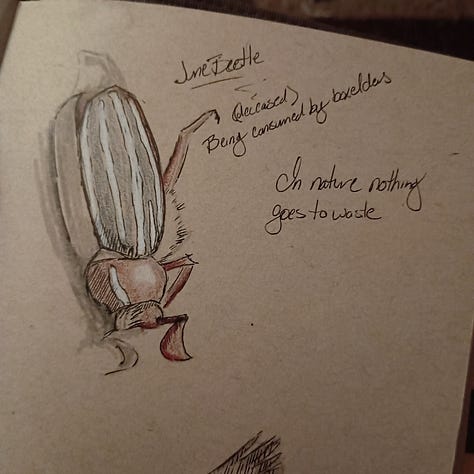 June Beetle
(deceased)
Being consumed by boxelders
In nature nothing
goes to waste